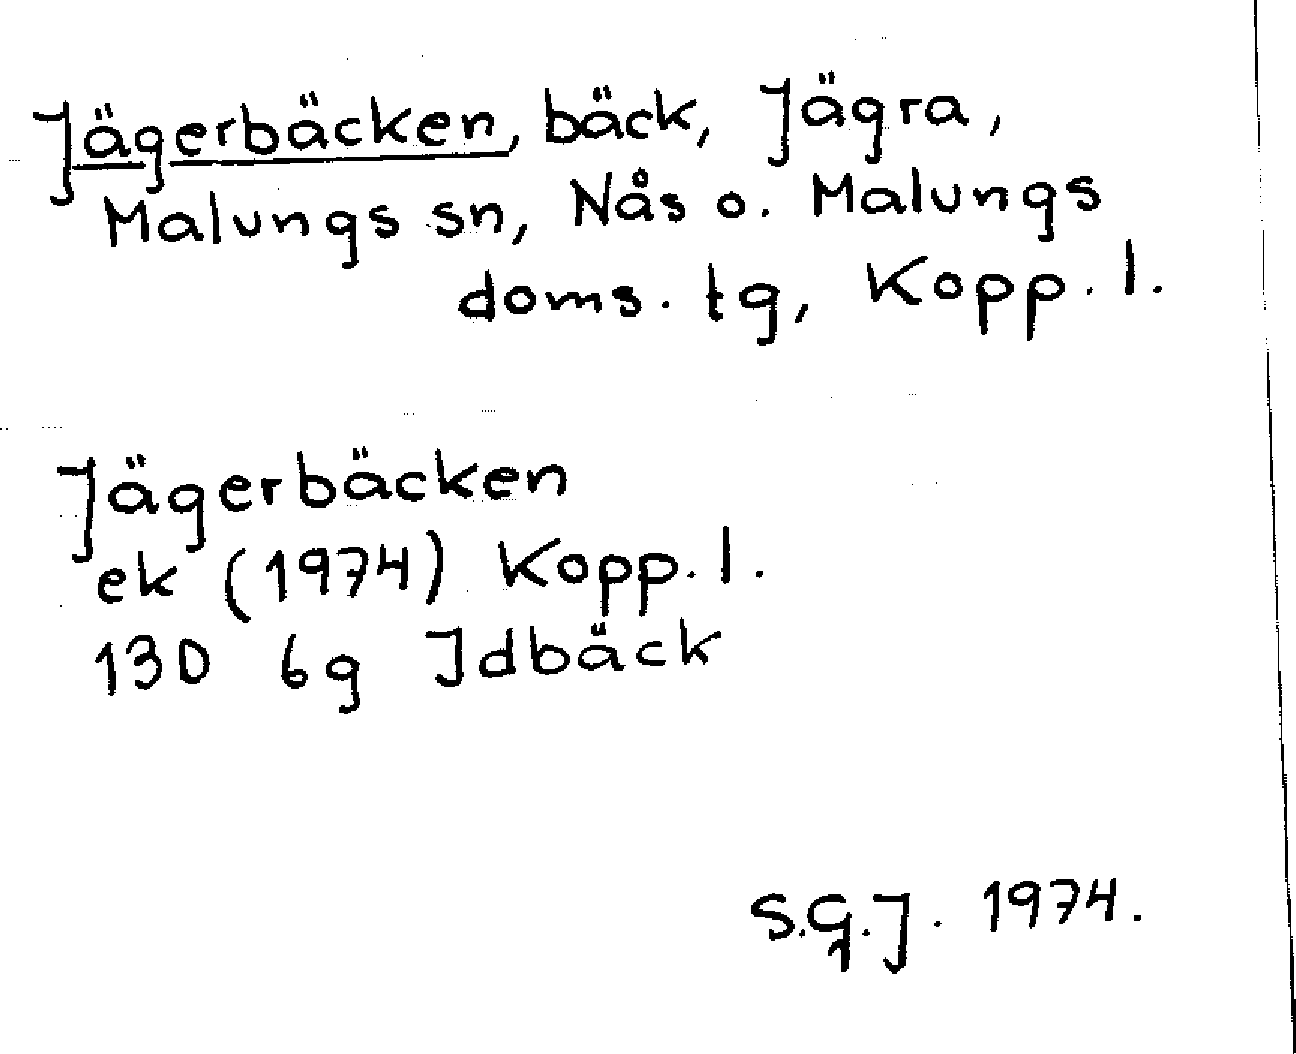 Jägerbäcken, bäck, Jägra,
Malungs sn, Nås o. Malungs
doms. tg, Kopp. l.
Jägerbäcken
ek (1974) Kopp. l.
13D 6g Idbäck
S.G.J. 1974.